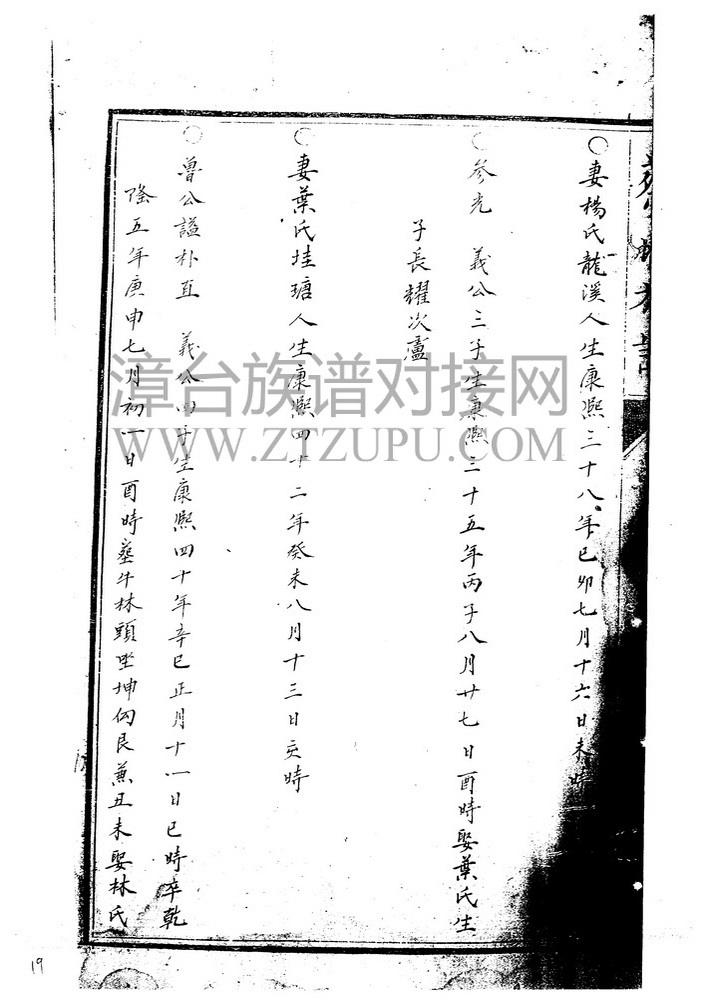 ○妻楊氏龍溪人生康熙三十八年己卯七月十六日未時
○參光　義公三子生康熙三十五年丙子八月廿七日酉時娶葉氏生
子長耀次蘆
○妻葉氏埭瑭人生康熙四十二年癸未八月十三日亥時
○魯公謚朴直　義公四子生康熙四十年辛巳正月十一日巳時卒乾
隆五年庚申七月初一日酉時塟牛林頭坐坤向艮兼丑未娶林氏
漳台族谱对接网
WWW.ZTZUPU.COM
19